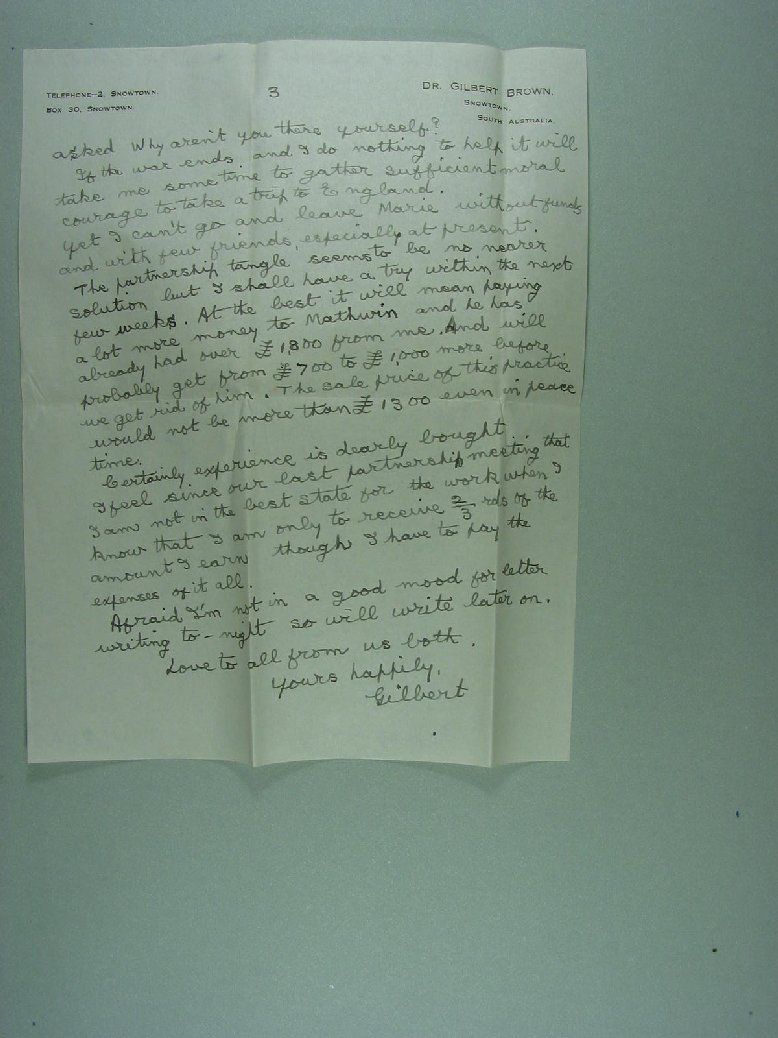 TELEPHONE-2, SNOWTOWN.
BOX 30, SNOWTOWN.
3
DR. GILBERT BROWN.
SNOWTOWN,
SOUTH AUSTRALIA.
asked Why aren't you there yourself?
If the war ends, and I do nothing to help it will
take me some time to gather sufficient moral
courage to take a trip to England.
Yet I can't go and leave Marie without funds
and with few friends, especially at present.
The partnership tangle seems to be no nearer
solution but I shall have a try within the next
few weeks. At the best it will mean paying
a lot more money to Mathwin and he has
already had over £1,800 from me. And will
probably get from £700 to £1,000 more before
we get rid of him. The sale price of this practice
would not be more than £1300 even in peace
time.
Certainly experience is dearly bought
I feel since our last partnership meeting that
I am not in the best state for the work when I
know that I am only to receive 2/3 rds of the
amount I earn though I have to pay the
expenses of it all.
Afraid I'm not in a good mood for letter
writing to-night so will write later on.
Love to all from us both.
Yours happily,
Gilbert